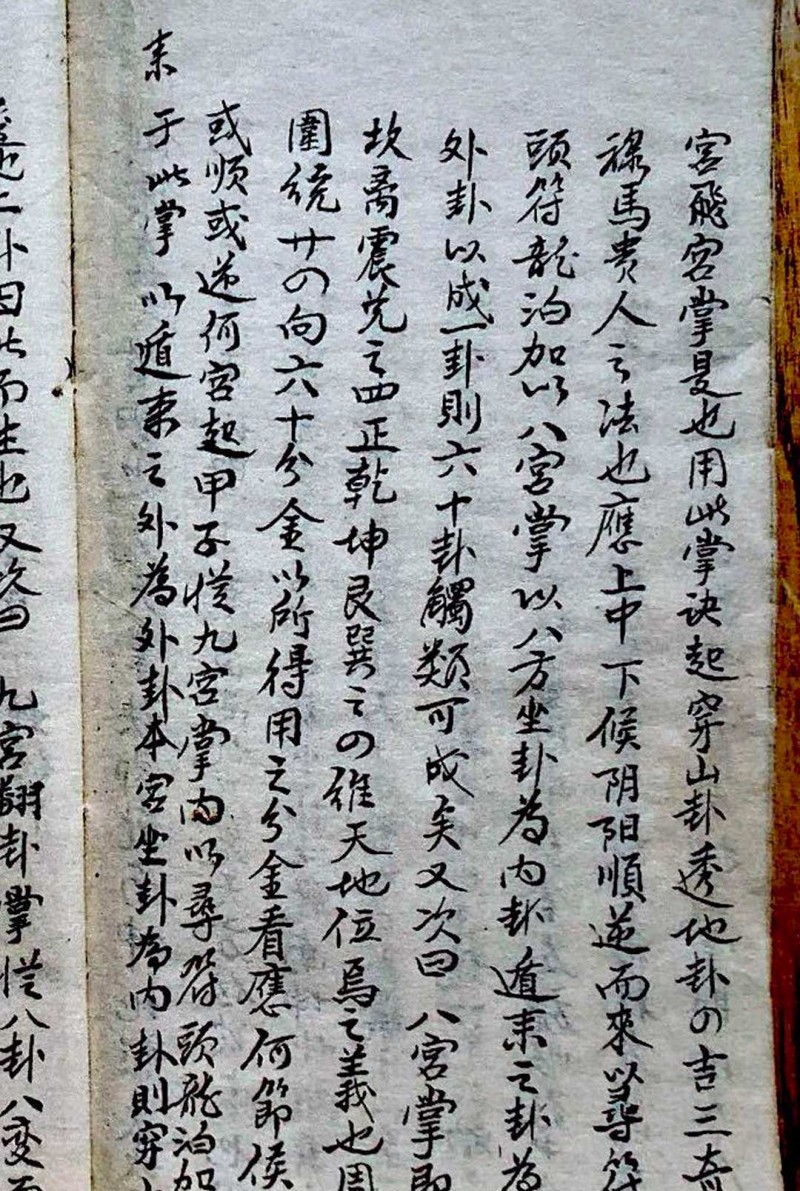 宮飛宮掌是也用此掌訣起穿山卦透地卦の吉三奇
祿馬貴人之法也應上中下候阴阳順逆而來以尋符
頭符龍泊加以八宮掌以八方坐卦為内卦遁來之卦為
外卦以成一卦則六十卦觸類可成矣又次曰八宮掌即
坎离震兑之四正乾坤艮巽之の維天地位焉之義也周
圍繞廿の向六十分金以所得用之分金看應何節侯
或順或逆何宮起甲子從九宮掌内以尋符頭龍泊加
來于此掌以遁來之外為外卦本宮坐卦為内卦則穿
二卦因此而生也又次曰九宮翻卦掌從八卦八变而